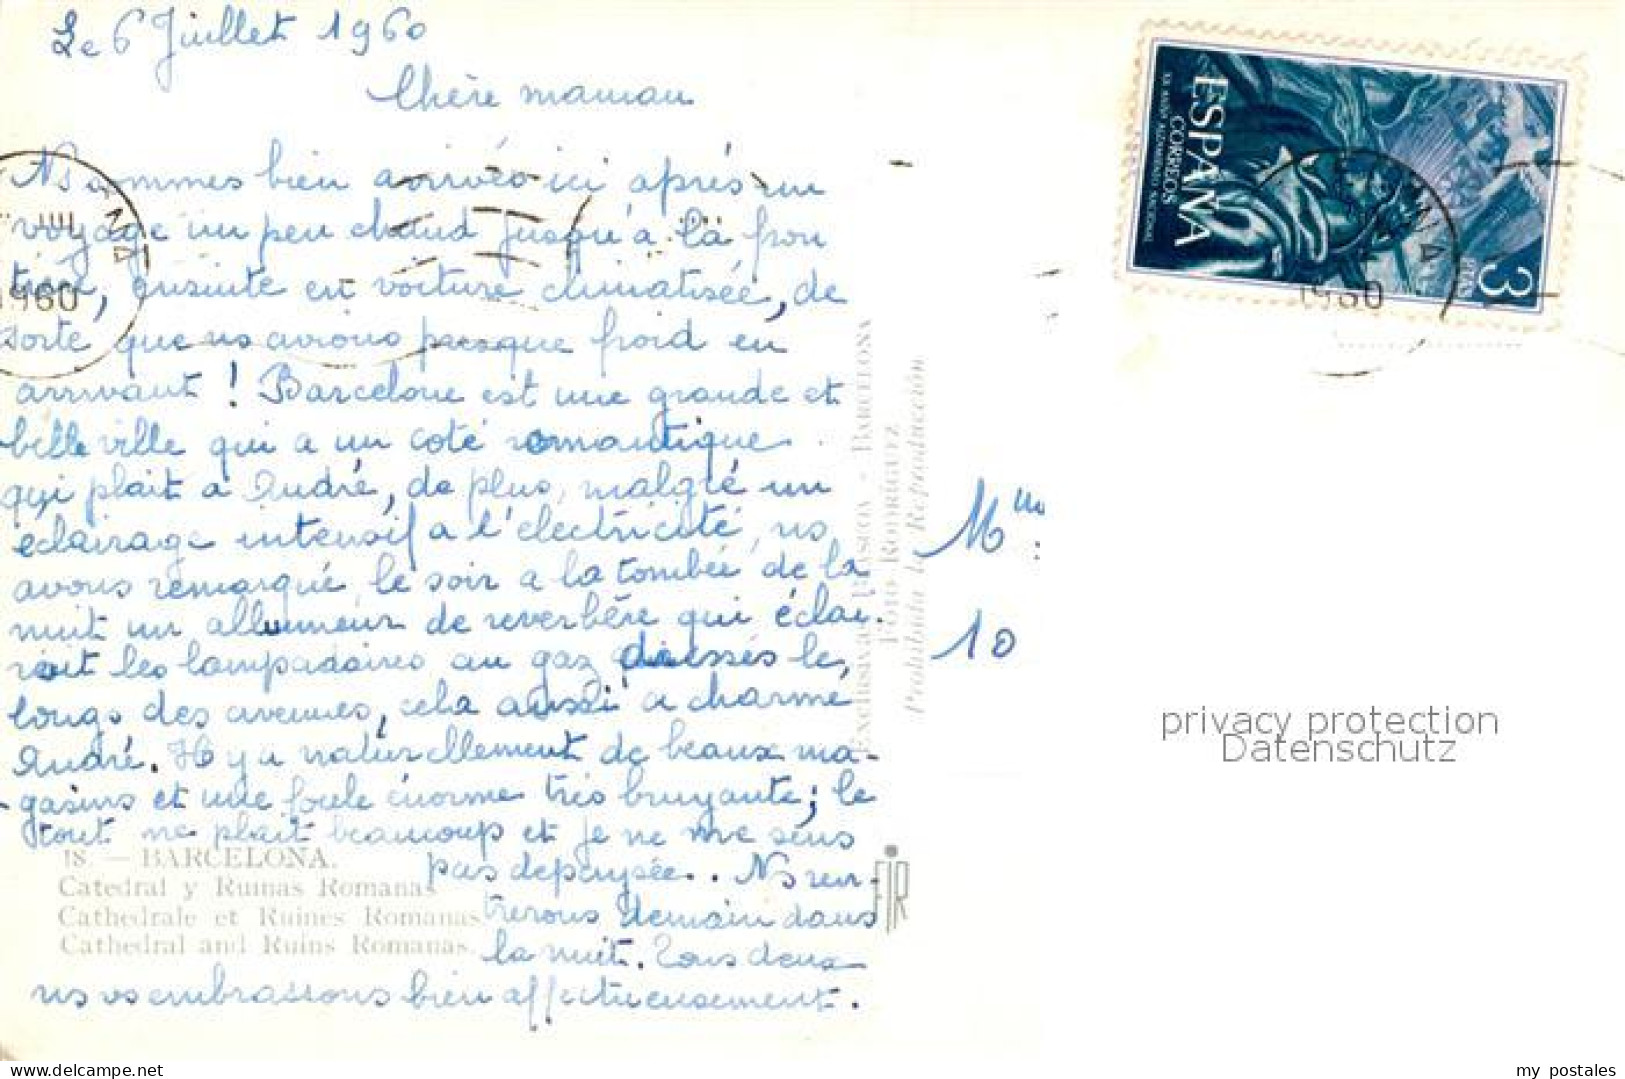 Le 6 Juillet 1960
Chère maman
Ns sommes bien arrivés ici après un
voyage un peu chaud jusqu'à la fron
tière, ensuite en voiture climatisée, de
sorte que ns avions presque froid en
arrivant ! Barcelone est une grande et
belle ville qui a un coté romantique
qui plait à André, de plus, malgré un
éclairage intensif a l'électricité, ns
avons remarqué le soir a la tombée de la
nuit un allumeur de reverbère qui éclai-
rait les lampadaires au gaz dressés le
longs des avenues, cela aussi a charmé
André. Il y a naturellement de beaux ma-
gasins et une foule énorme très bruyante ; le
tout me plait beaucoup et je ne me sens
pas depaysée.. Ns ren-
trerons demain dans
la nuit. Tous deux
ns vs embrassons bien affectueusement.
18. — BARCELONA.
Catedral y Ruinas Romanas
Cathedrale et Ruines Romanas
Cathedral and Ruins Romanas.
EXCLUSIVAS - BARCELONA
FOTO RODRIGUEZ
Prohibida la Reproducción
FIR
ESPAÑA
CORREOS
3
1960
1960
Mme
10
privacy protection
Datenschutz
www.delcampe.net
my_postales